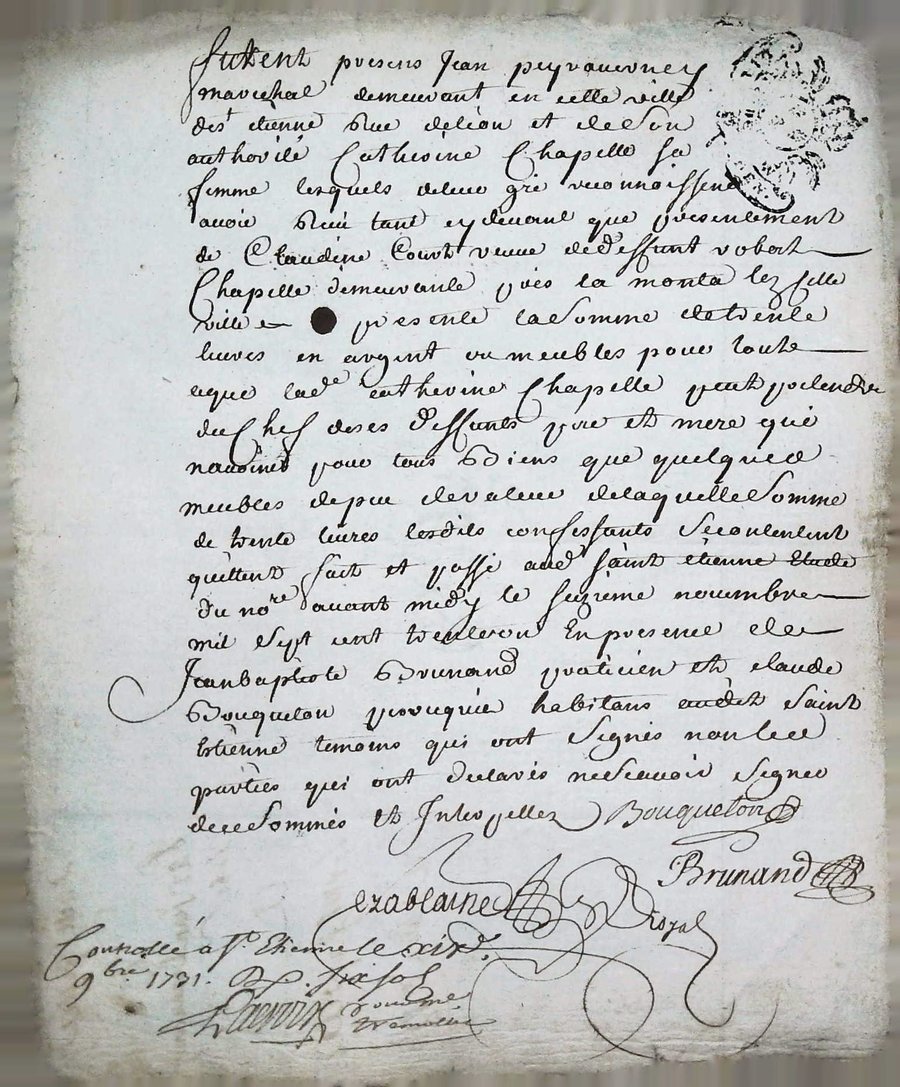 furent presens Jean peyrauerney
marechal demeurant en cette ville
de st etienne Rue de lion et de son
authorité Catherine Chapelle sa
femme lesquels de leur gré reconnoissent
auoir Reçu tant cy deuant que presentement
de Claudine Court veuue de deffunt robert
Chapelle demeurante près la monta lez cette
ville presente la somme de trente
liures en argent ou meubles pour toute
aque lade catherine Chapelle peut pretendre
du Chef de ses deffunts pere et mere qui
n'auoint pour tous Biens que quelques
meubles de peu de valeur de laquelle somme
de trente liures lesdits confessants se contentent
quittent fait et passé aud saint etienne Etude
du nore auant midy le seizieme nouembre
mil sept cent trente vn En presence de
Jean baptiste Brunand praticien et claude
Bouqueton peruquié habitans audit Saint
Etienne temoins qui ont Signés non les
parties qui ont declarés ne scauoir signer
de ce sommés et Interpellez Bouqueton
Brunand
ezablaine Royal
Controllé a St Etienne le
9bre 1731. six sols